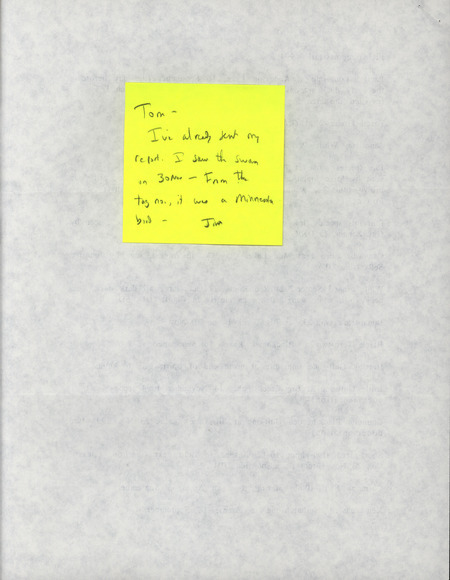 Tom -
I've already sent my
report. I saw the swan
on 30 Nov - From the
tag no., it was a Minnesota
bird - Jim